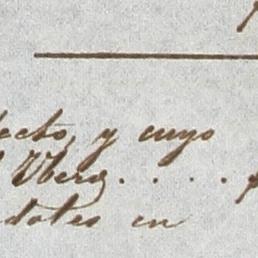 fecto, y cuyo
Vbero . . . .
dotes en